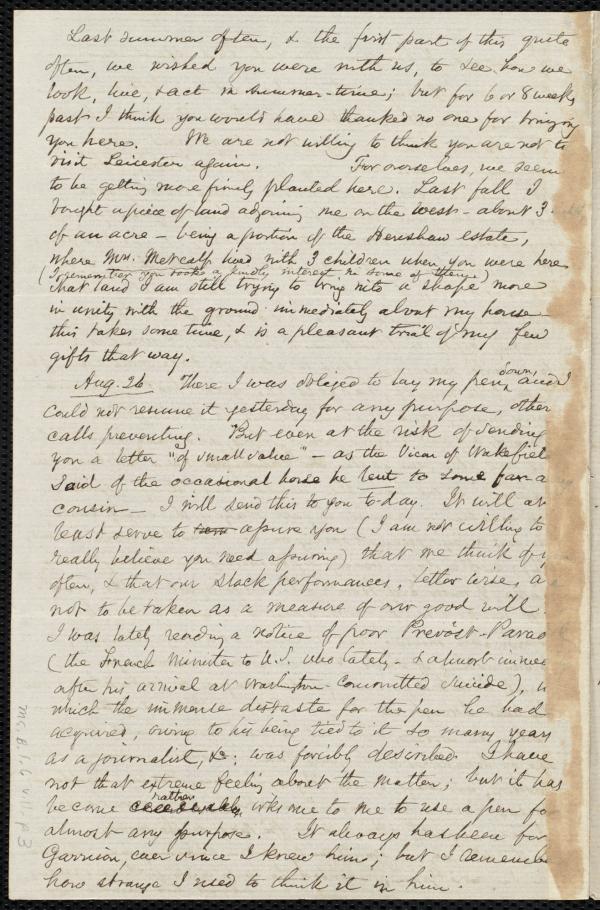 Last summer often, & the first part of this quite
often, we wished you were with us, to see how we
look, live, & act in summer-time; but for 6 or 8 weeks
past I think you would have thanked no one for bringing
you here. We are not willing to think you are not to
visit Leicester again. For ourselves, we seem
to be getting more firmly planted here. Last fall I
bought a piece of land adjoining me on the west - about 3
of an acre - being a portion of the Henshaw estate,
where Mrs. Metcalf lived with 3 children when you were here
(I remember you took a kindly interest in some of them)
That land I am still trying to bring into a shape more
in unity with the ground immediately about my house -
this takes some time, & is a pleasant trial of my few
gifts that way.
Aug. 26. There I was obliged to lay my pen down, and
could not resume it yesterday for any purpose, other
calls preventing. But even at the risk of sending
you a letter "of small value" - as the Vicar of Wakefiel
Said of the occasional horse he lent to some far a
cousin - I will send this to you to-day. It will at
least serve to assure you (I am not willing to
really believe you need assuring) that we think of y
often, & that our slack performances, letter wise, a
not to be taken as a measure of our good will.
I was lately reading a notice of poor Prevost-Parad
(the French Minister to U.S. who lately - & almost immed
after his arrival at Washington - committed suicide), in
which the immense distaste for the pen he had
acquired, owing to his being tied to it so many years
as a journalist, &c. was forcibly described. I have
not that extreme feeling about the matter; but it has
become rather irksome to me to use a pen fo
almost any purpose. It always has been for
Garrison, ever since I knew him; but I remembe
how strange I used to think it in him.
Ms. B. 1. 6 v. 11, p. 3